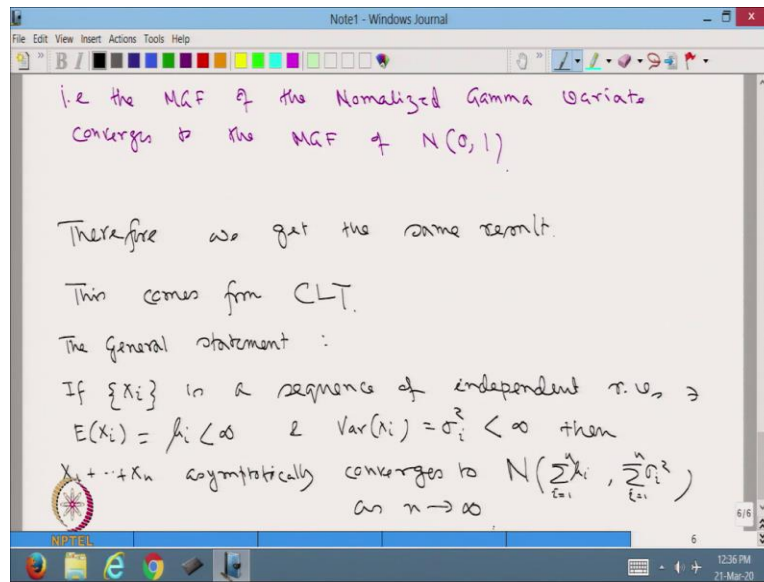 Note1 - Windows Journal
File Edit View Insert Actions Tools Help
i.e the MGF of the Normalized Gamma Variate
converges to the MGF of N(0,1)
Therefore we get the same result.
This comes from CLT.
The General statement :
If {Xi} is a sequence of independent r.v.s ∋
E(Xi) = μi < ∞ & Var(Xi) = σi² < ∞ then
X1 + ... + Xn asymptotically converges to N(∑_{i=1}^{n} μi, ∑_{i=1}^{n} σi²)
as n → ∞.
6/6
6
NPTEL
12:36 PM
21-Mar-20